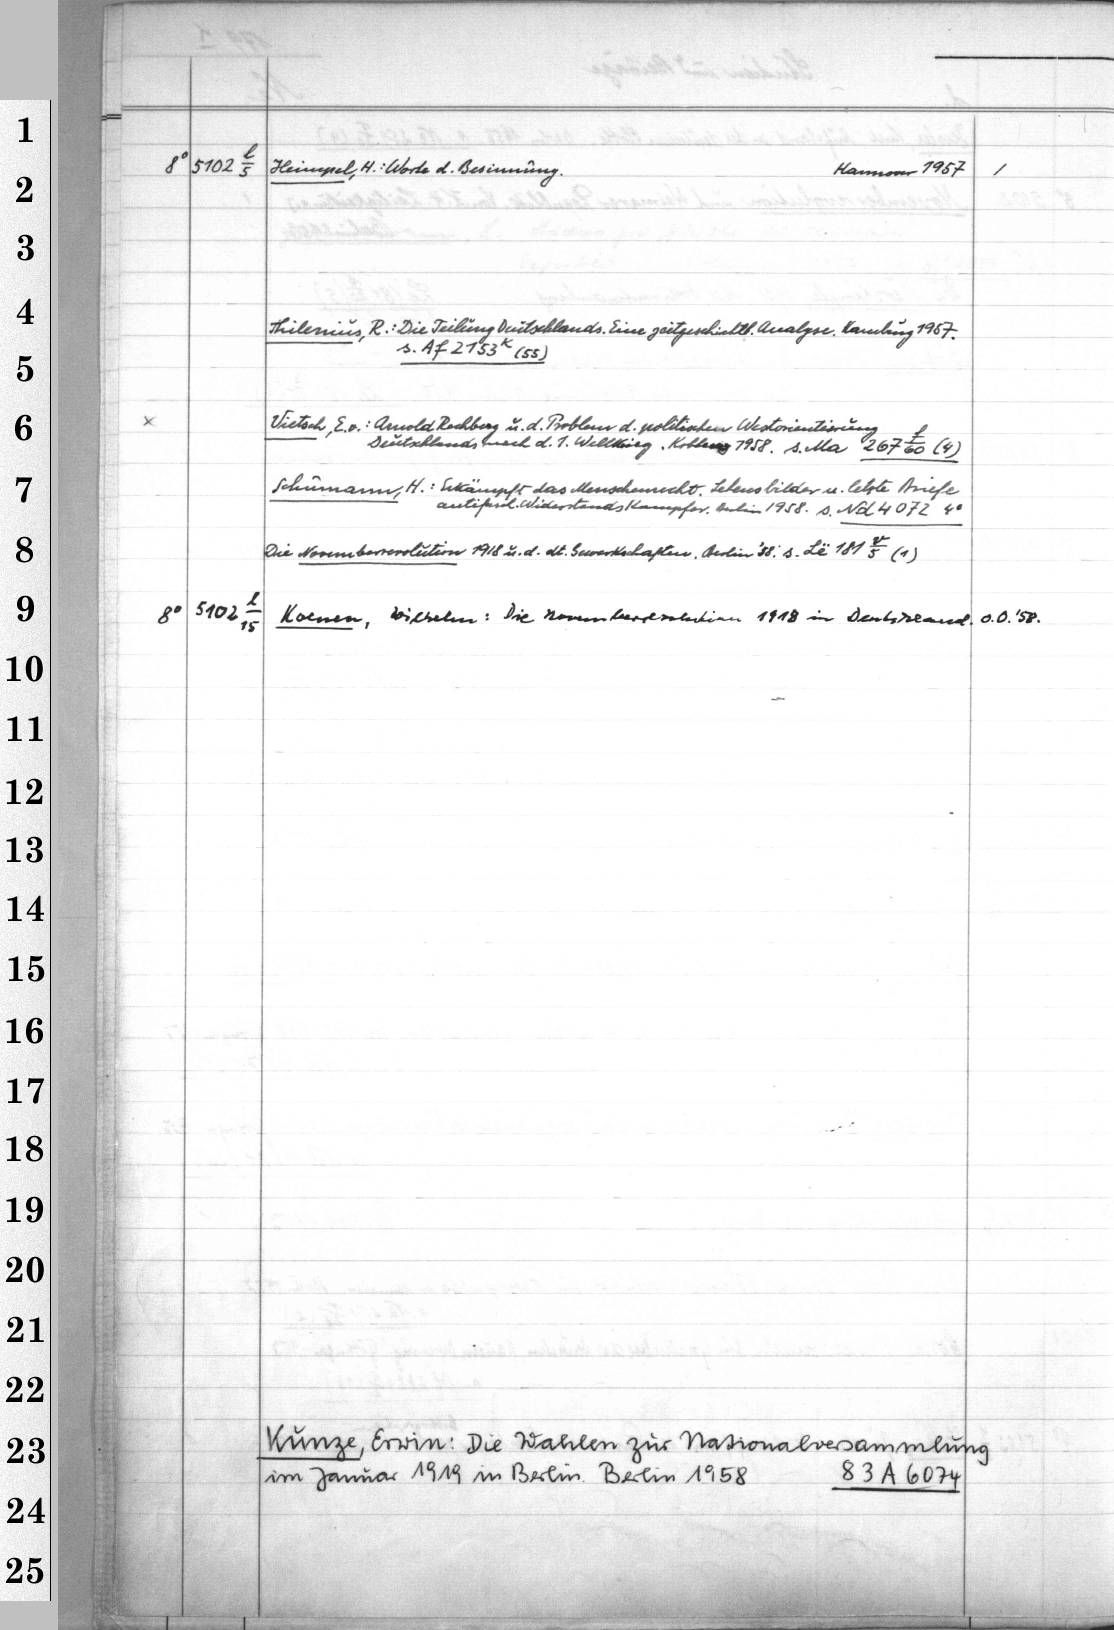 1
2
3
4
5
6
7
8
9
10
11
12
13
14
15
16
17
18
19
20
21
22
23
24
25
8° 5102 l/5 Heimpel, H.: Worte d. Besinnung. Hannover 1957 /
Thilenius, R.: Die Teilung Deutschlands. Eine zeitgeschichtl. Analyse. Hamburg 1957.
s. Af 2153 k (55)
x Vietsch, E.v.: Arnold Rechberg u. d. Problem d. politischen Westorientierung
Deutschlands nach d. 1. Weltkrieg. Koblenz 1958. s. Ma 267 f/60 (4)
Schumann, H.: Erkämpft das Menschenrecht. Lebensbilder u. letzte Briefe
antifasch. Widerstandskämpfer. Berlin 1958. s. Nd 4072 4°
Die Novemberrevolution 1918 u. d. dt. Gewerkschaften. Berlin '58. s. Lë 181 v/5 (1)
8° 5102 l/15 Koenen, Wilhelm: Die Novemberrevolution 1918 in Deutschland. o.O. '58.
Kunze, Erwin: Die Wahlen zur Nationalversammlung
im Januar 1919 in Berlin. Berlin 1958 83 A 6074